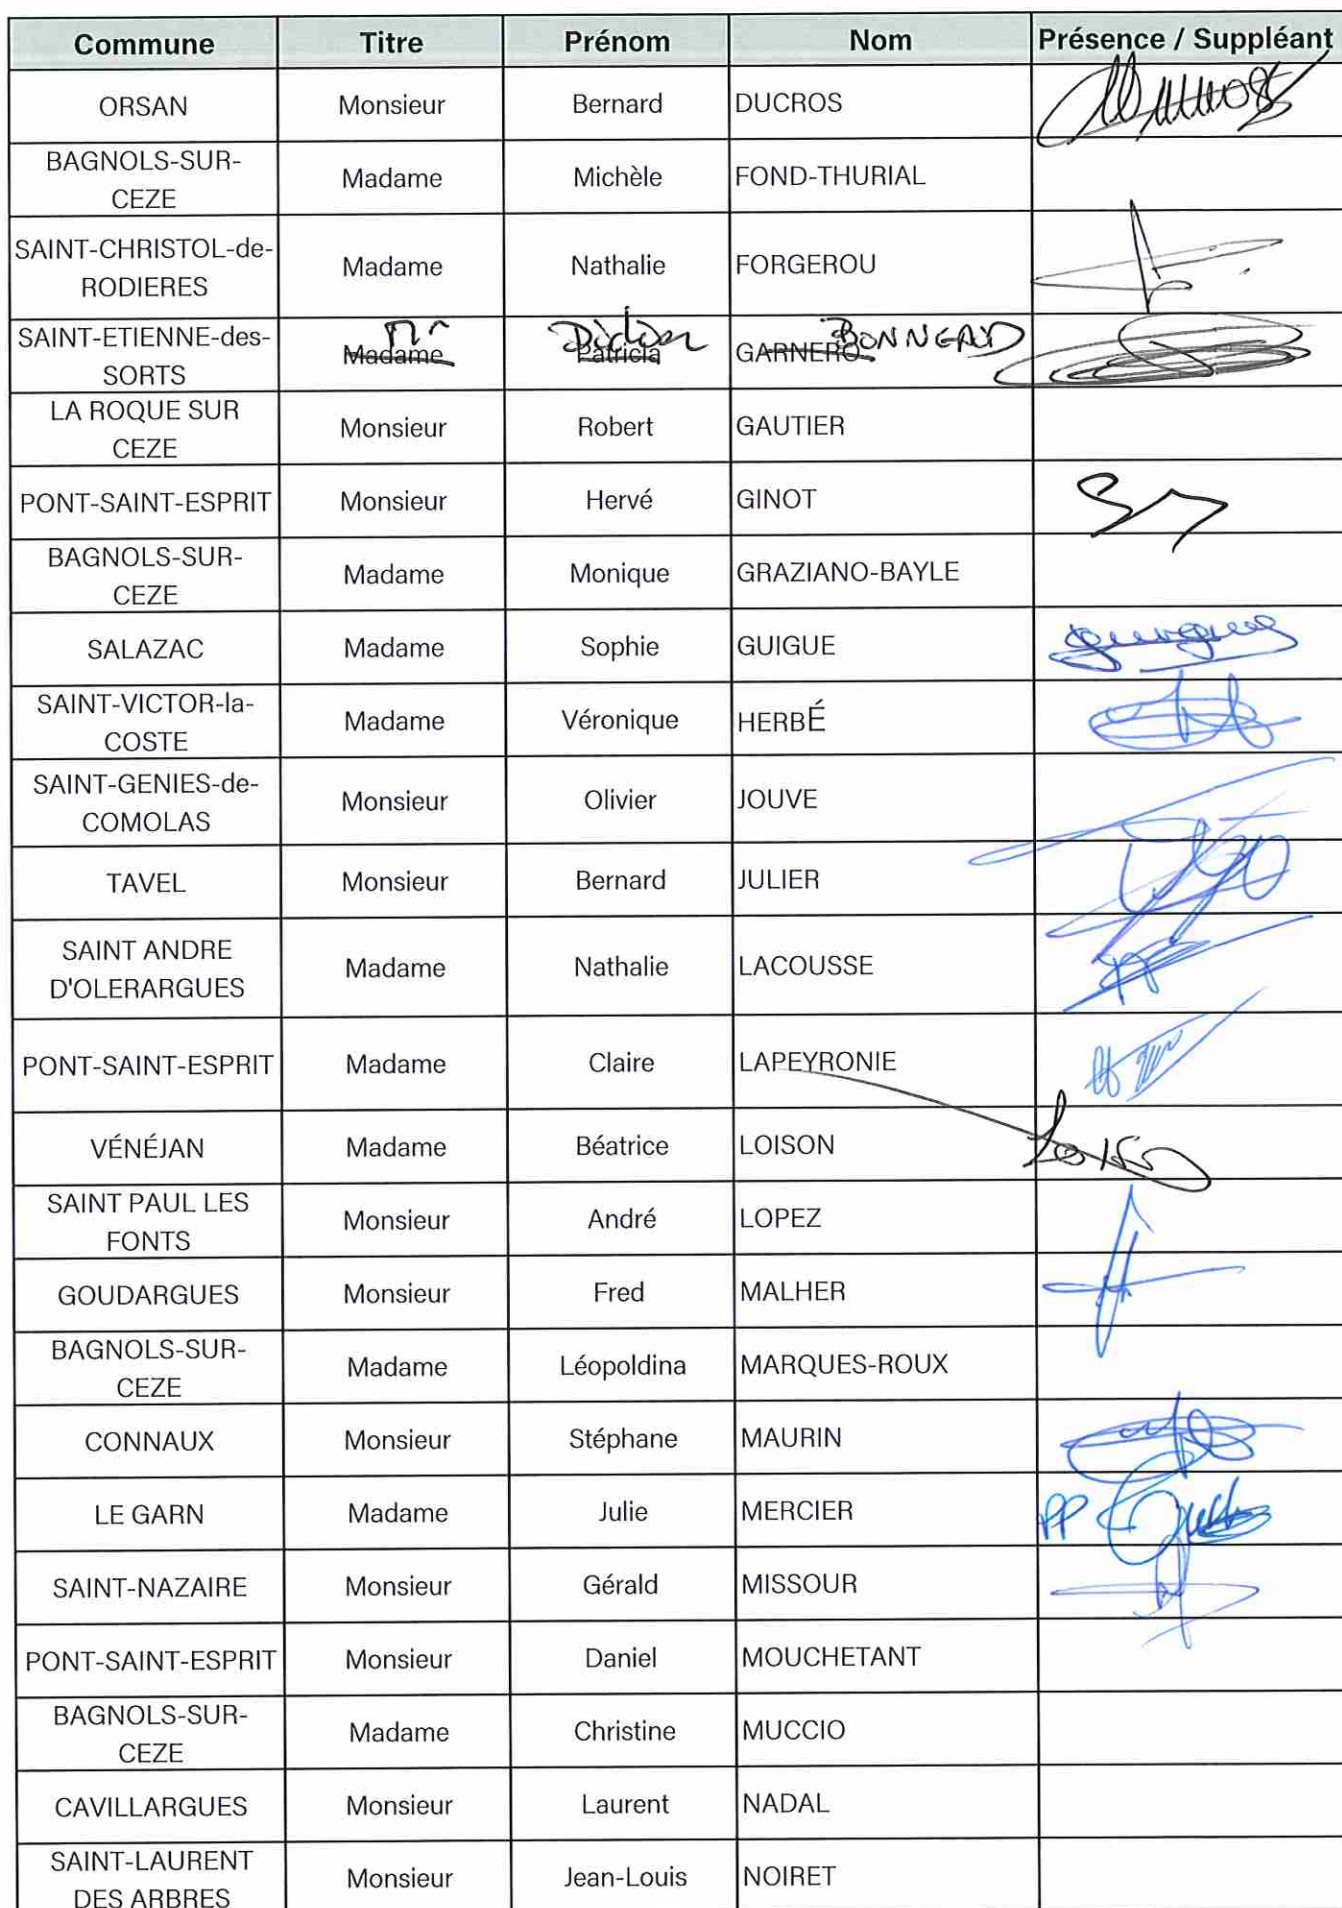 Commune Titre Prénom Nom Présence / Suppléant
ORSAN Monsieur Bernard DUCROS
BAGNOLS-SUR-
CEZE Madame Michèle FOND-THURIAL
SAINT-CHRISTOL-de-
RODIERES Madame Nathalie FORGEROU
SAINT-ETIENNE-des-
SORTS Madame Mr Patricia Didier GARNERO BONNEAUD
LA ROQUE SUR
CEZE Monsieur Robert GAUTIER
PONT-SAINT-ESPRIT Monsieur Hervé GINOT
BAGNOLS-SUR-
CEZE Madame Monique GRAZIANO-BAYLE
SALAZAC Madame Sophie GUIGUE
SAINT-VICTOR-la-
COSTE Madame Véronique HERBÉ
SAINT-GENIES-de-
COMOLAS Monsieur Olivier JOUVE
TAVEL Monsieur Bernard JULIER
SAINT ANDRE
D'OLERARGUES Madame Nathalie LACOUSSE
PONT-SAINT-ESPRIT Madame Claire LAPEYRONIE
VÉNÉJAN Madame Béatrice LOISON
SAINT PAUL LES
FONTS Monsieur André LOPEZ
GOUDARGUES Monsieur Fred MALHER
BAGNOLS-SUR-
CEZE Madame Léopoldina MARQUES-ROUX
CONNAUX Monsieur Stéphane MAURIN
LE GARN Madame Julie MERCIER PP
SAINT-NAZAIRE Monsieur Gérald MISSOUR
PONT-SAINT-ESPRIT Monsieur Daniel MOUCHETANT
BAGNOLS-SUR-
CEZE Madame Christine MUCCIO
CAVILLARGUES Monsieur Laurent NADAL
SAINT-LAURENT
DES ARBRES Monsieur Jean-Louis NOIRET